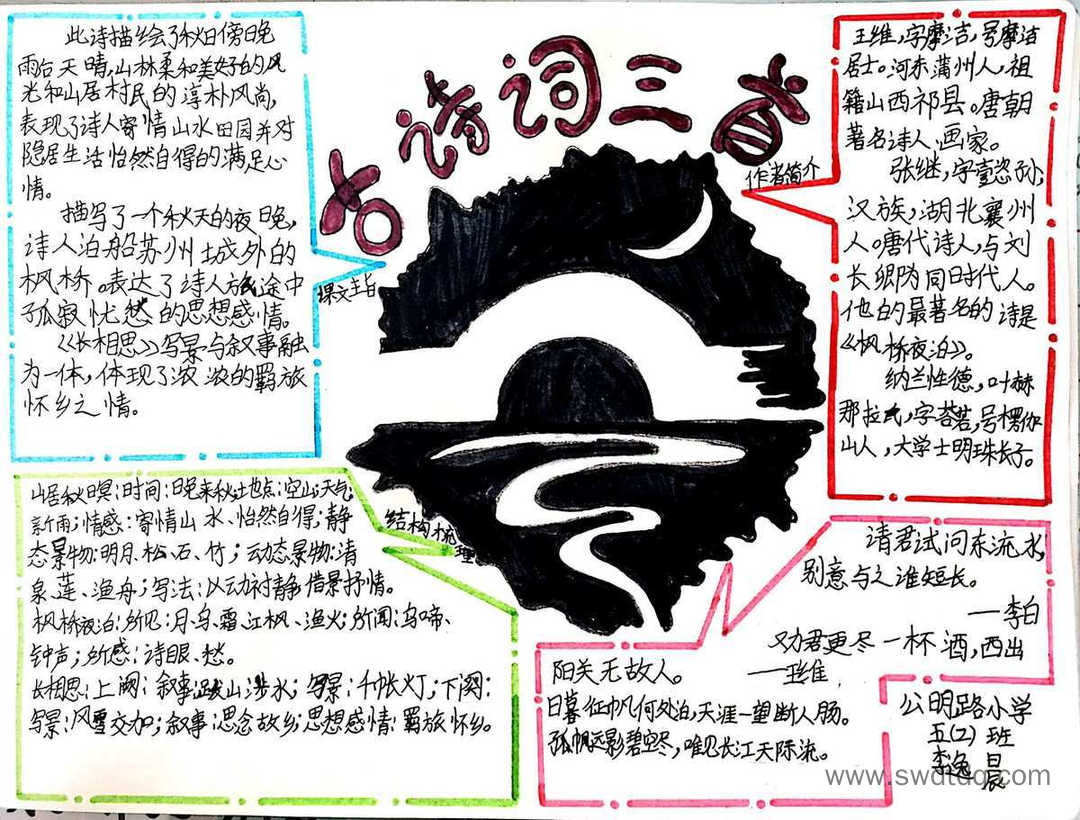 古诗词三首
此诗描绘了秋日傍晚
雨后天晴,山林柔和美好的风
光和山居村民的淳朴风尚,
表现了诗人寄情山水田园并对
隐居生活怡然自得的满足心
情。
描写了一个秋天的夜晚,
诗人泊船苏州城外的
枫桥。表达了诗人旅途中
孤寂忧愁的思想感情。
《长相思》写景与叙事融
为一体,体现了浓浓的羁旅
怀乡之情。
课文主旨
作者简介
王维,字摩洁,号摩洁
居士。河东蒲州人,祖
籍山西祁县。唐朝
著名诗人、画家。
张继,字懿孙,
汉族,湖北襄州
人。唐代诗人,与刘
长卿为同时代人。
他的最著名的诗是
《枫桥夜泊》。
纳兰性德,叶赫
那拉氏,字容若,号楞伽
山人,大学士明珠长子。
结构梳理
山居秋暝:时间:晚来秋;地点:空山;天气:
新雨;情感:寄情山水、怡然自得;静
态景物:明月、松、石、竹;动态景物:清
泉、莲、渔舟;写法:以动衬静 借景抒情。
枫桥夜泊:所见:月、乌、霜、江枫、渔火;所闻:乌啼、
钟声;所感:诗眼、愁。
长相思:上阕:叙事:跋山涉水;写景:千帐灯;下阕:
写景:风雪交加;叙事:思念故乡;思想感情:羁旅怀乡。
请君试问东流水,
别意与之谁短长。
—李白
劝君更尽一杯酒,西出
阳关无故人。
—王维
日暮征帆何处泊,天涯一望断人肠。
孤帆远影碧空尽,唯见长江天际流。
公明路小学
五(2)班
李逸晨
www.swdtdq.com